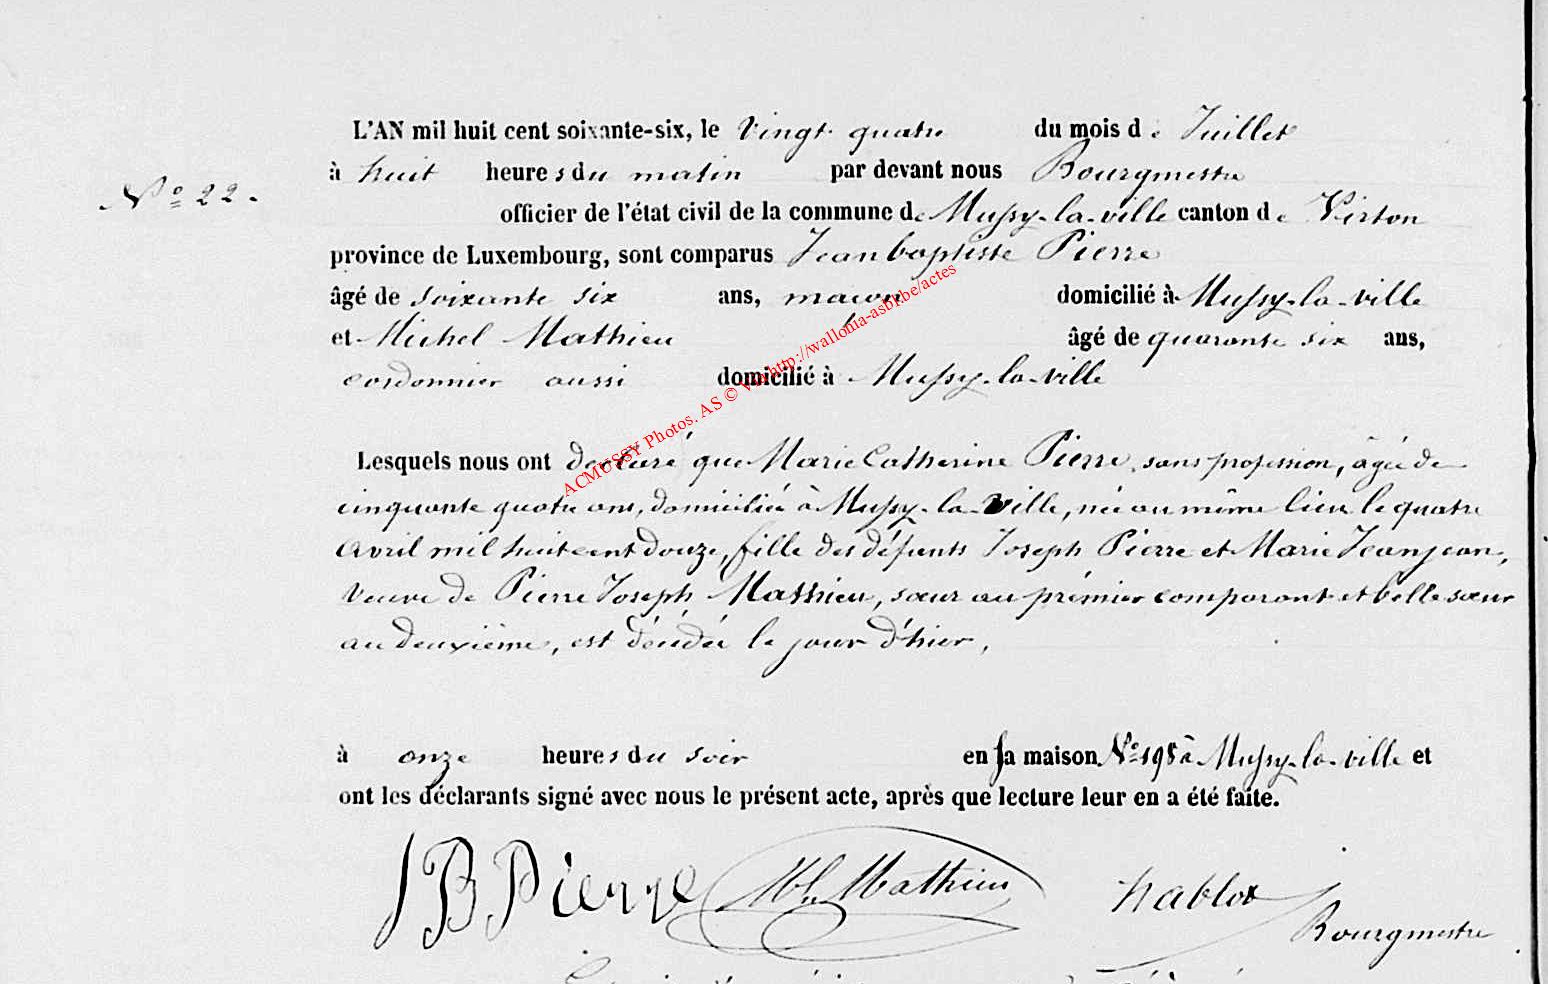 L'AN mil huit cent soixante-six, le vingt quatre du mois de Juillet
à huit heures du matin par devant nous Bourgmestre
N° 22.
officier de l'état civil de la commune de Mussy-la-ville canton de Virton
province de Luxembourg, sont comparus Jeanbaptiste Pierre
âgé de soixante six ans, maçon domicilié à Mussy-la-ville
et Michel Mathieu âgé de quarante six ans,
cordonnier aussi domicilié à Mussy-la-ville
ACMUSSY Photos. AS © via http://wallonia-asbl.be/actes
Lesquels nous ont déclaré que Marie Catherine Pierre, sans profession, âgée de
cinquante quatre ans, domiciliée à Mussy-la-Ville, née au même lieu le quatre
Avril mil huit cent douze, fille des défunts Joseph Pierre et Marie Jeanjean,
veuve de Pierre Joseph Mathieu, sœur au prémier comparant et belle sœur
au deuxième, est décédée le jour d'hier,
à onze heures du soir en sa maison N° 198 à Mussy-la-ville et
ont les déclarants signé avec nous le présent acte, après que lecture leur en a été faite.
JB Pierre Mel Mathieu Nablot
Bourgmestre